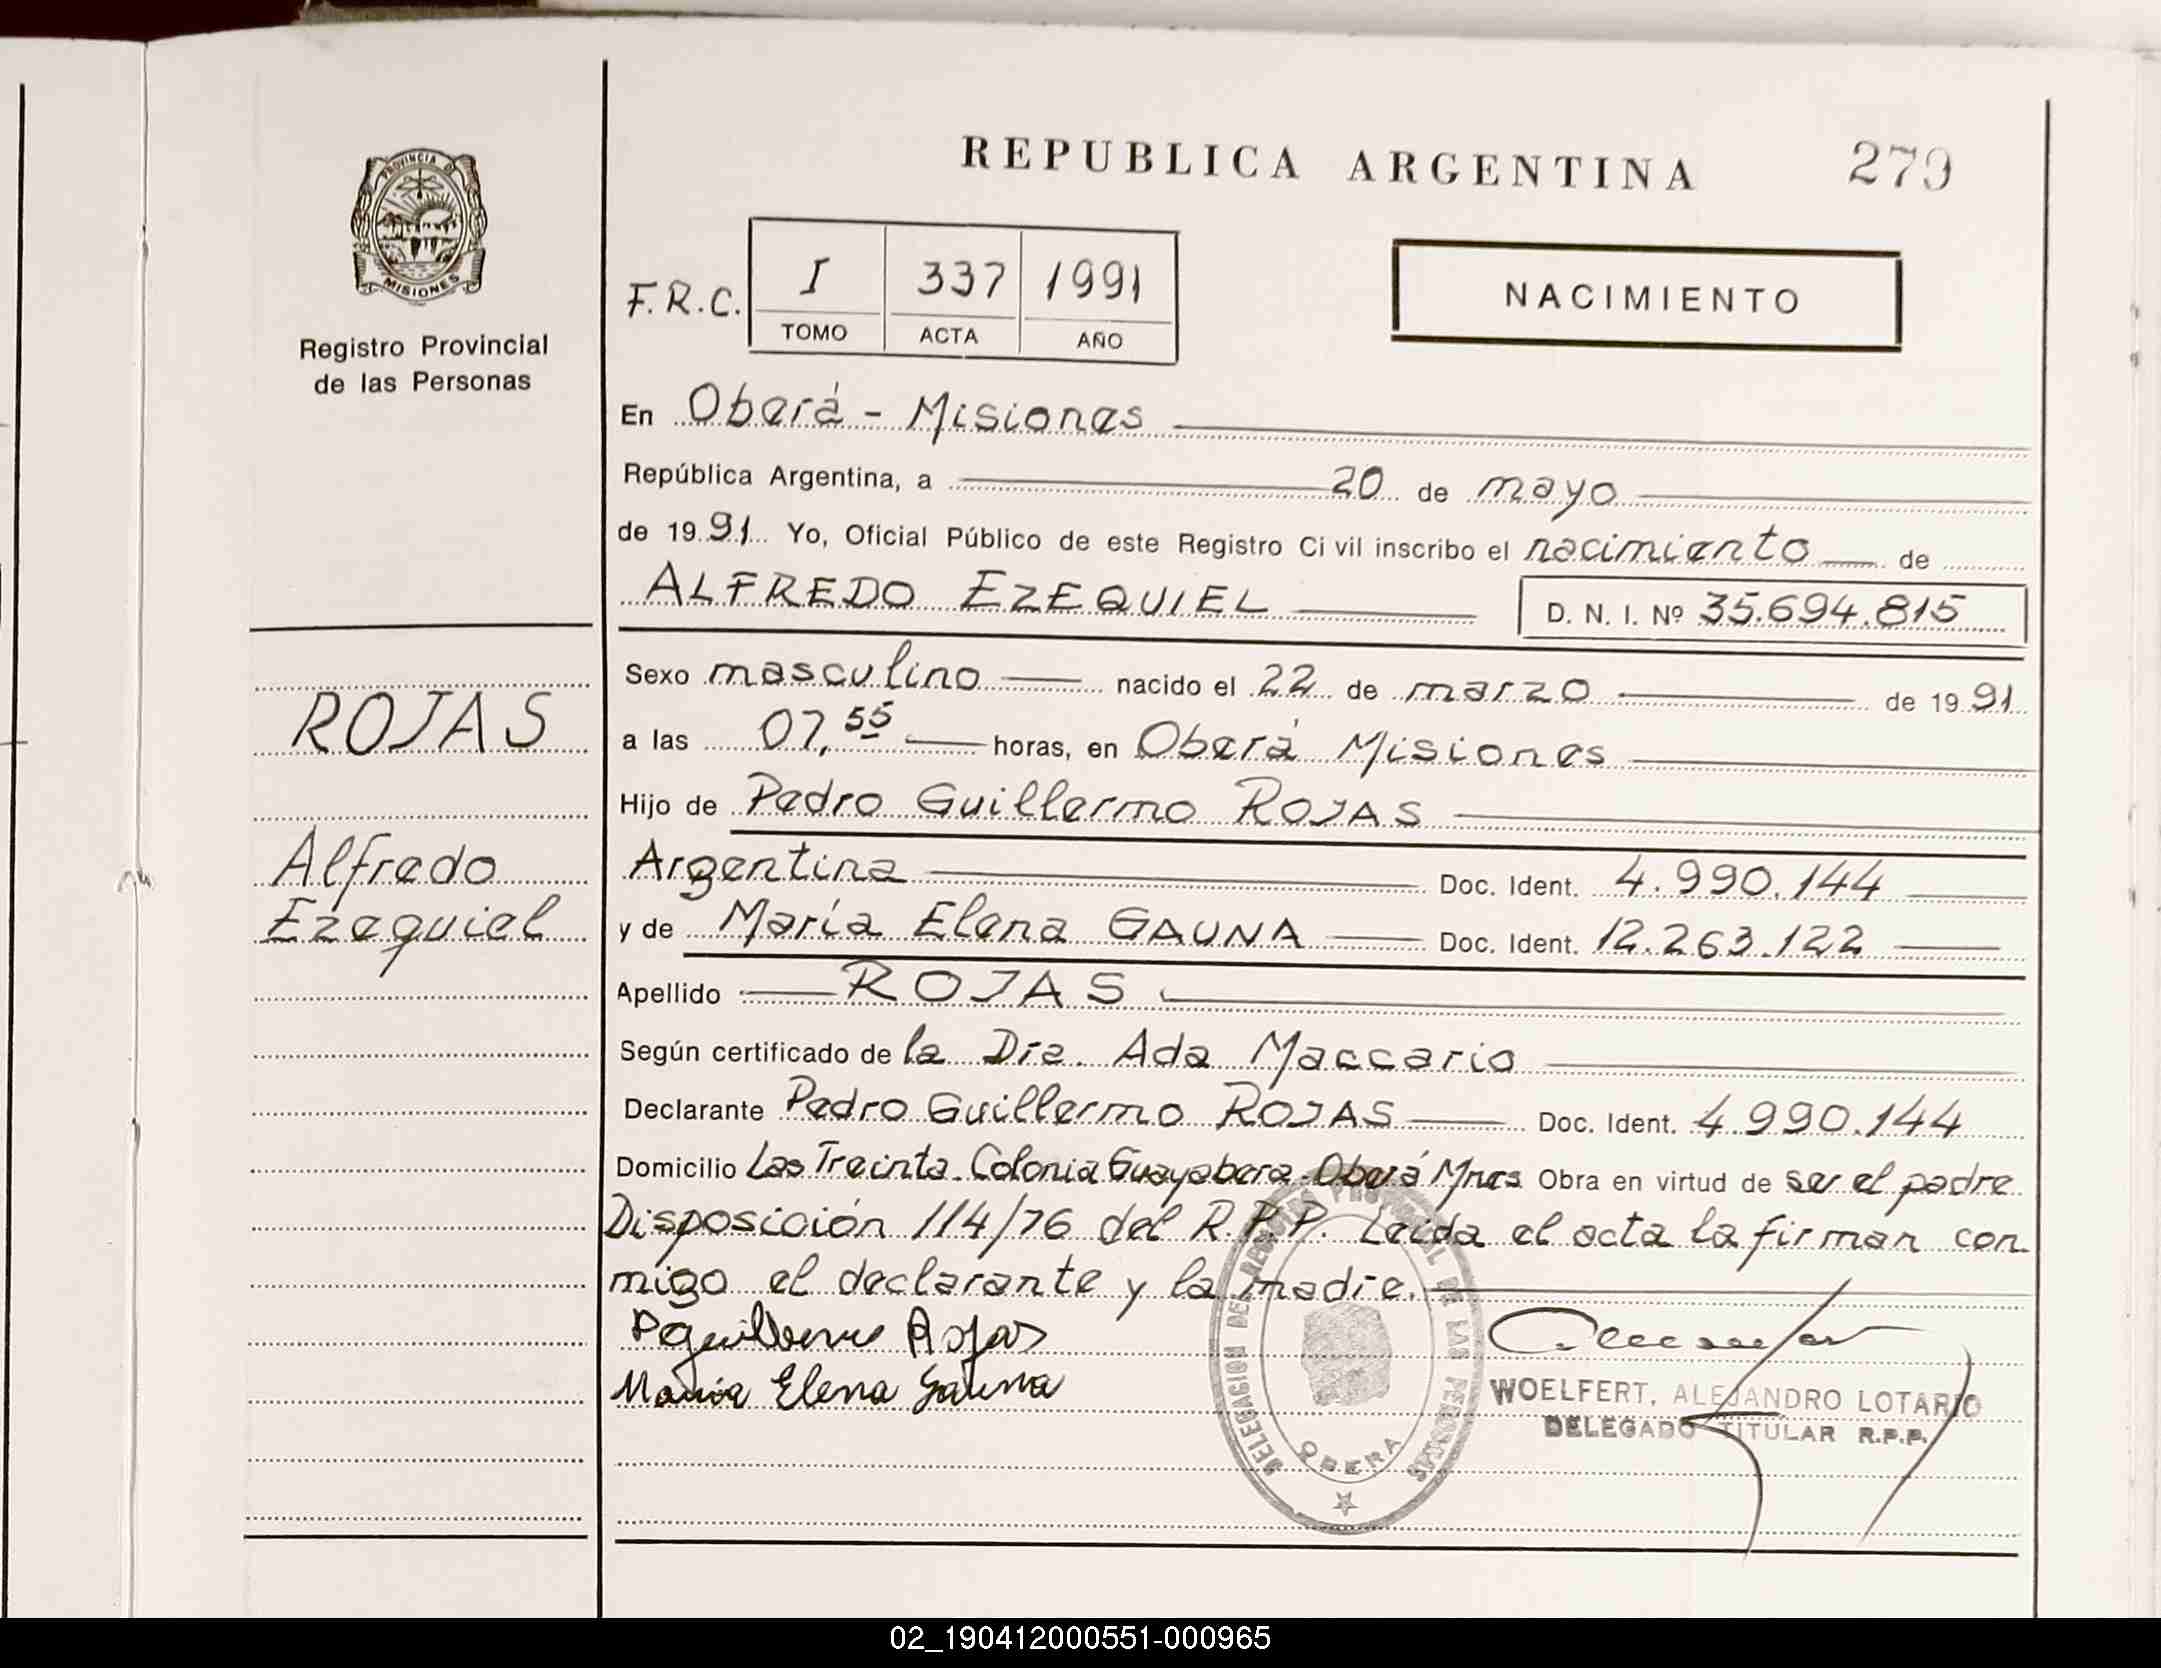 REPUBLICA ARGENTINA
279
PROVINCIA D
MISIONES
Registro Provincial
de las Personas
F.R.C.
I 337 1991
TOMO ACTA AÑO
NACIMIENTO
En Oberá - Misiones
República Argentina, a 20 de mayo
de 1991 Yo, Oficial Público de este Registro Ci vil inscribo el nacimiento de
ALFREDO EZEQUIEL D. N. I. Nº 35.694.815
Sexo masculino nacido el 22 de marzo de 1991
ROJAS
a las 07,55 horas, en Oberá Misiones
Hijo de Pedro Guillermo ROJAS
Alfredo
Argentina Doc. Ident. 4.990.144
Ezequiel
y de María Elena GAUNA Doc. Ident. 12.263.122
Apellido ROJAS
Según certificado de la Dra. Ada Maccario
Declarante Pedro Guillermo ROJAS Doc. Ident. 4.990.144
Domicilio Las Treinta-Colonia Guayabera-Oberá Mnes Obra en virtud de ser el padre
Disposición 114/76 del R.P.P. Leída el acta la firman con
migo el declarante y la madre.
Pguillermo Rojas
Maria Elena Gauna
DELEGACION DEL REGISTRO PROVINCIAL DE LAS PERSONAS
OBERA
WOELFERT, ALEJANDRO LOTARIO
DELEGADO TITULAR R.P.P.
02_190412000551-000965